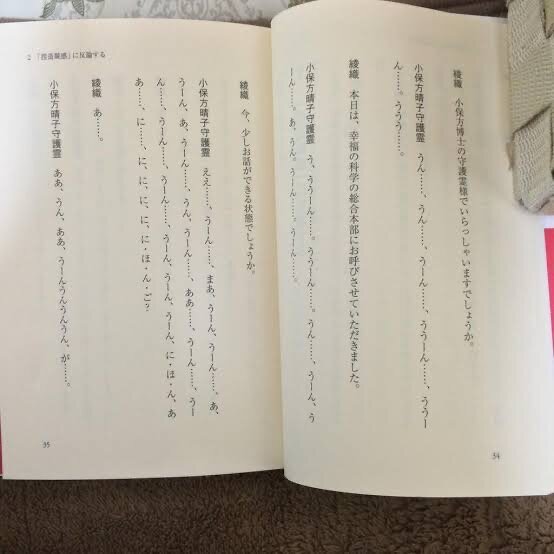 綾織 小保方博士の守護霊様でいらっしゃいますでしょうか。
小保方晴子守護霊 うん……、うーん……、うーん……、ううーん……、ううー
ん……。ううう……。
綾織 本日は、幸福の科学の総合本部にお呼びさせていただきました。
小保方晴子守護霊 う、ううーん……。ううーん……。うん……、うーん、う
ーん……。あ、うん。うーん……。うーん……。
34
2 「捏造疑惑」に反論する
綾織 今、少しお話ができる状態でしょうか。
小保方晴子守護霊 ええ……、うーん……、まあ、うーん、うーん……、あ、
うーん、あ、うーん……、うん、うーん……、ああ……、うーん……、うー
ん……、うーん……、うーん……、うーん、うーん、うーん、に・ほ・ん、あ
あ……、に……、に、に、に、に・ほ・ん・ご？
綾織 あ……。
小保方晴子守護霊 ああ、うん、ああ、うーんうんうんうん、が……。
35